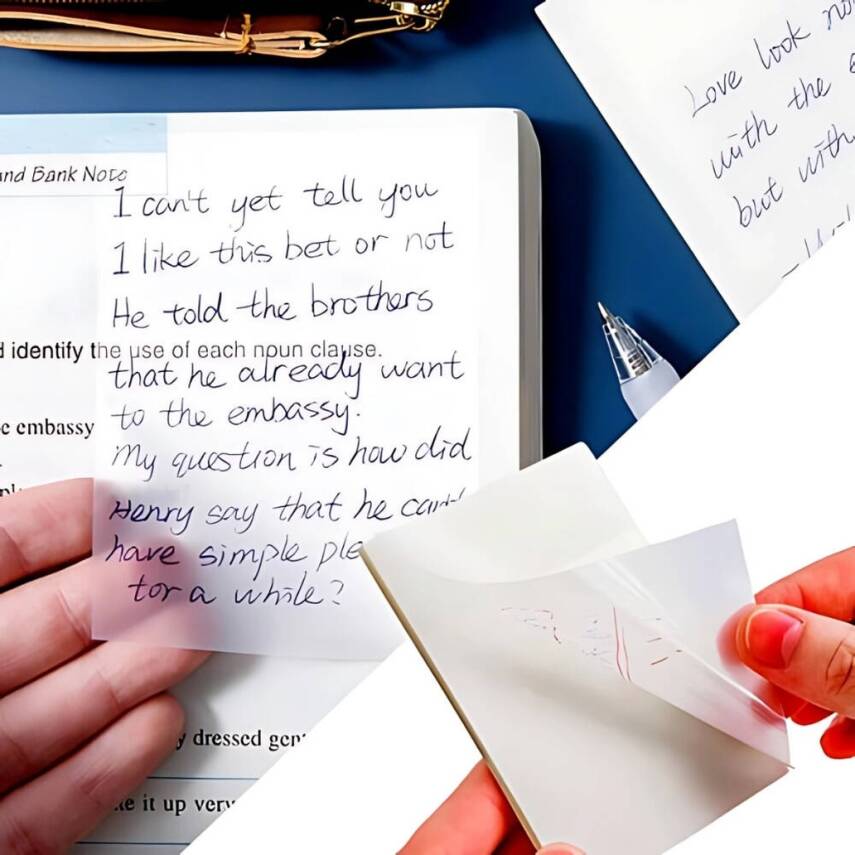 and Bank Note
I can't yet tell you
I like this bet or not
He told the brothers
identify the use of each noun clause.
that he already want
embassy
to the embassy.
My question is how did
Henry say that he can't
have simple
for a while?
dressed
it up very
Love look
with the
but with